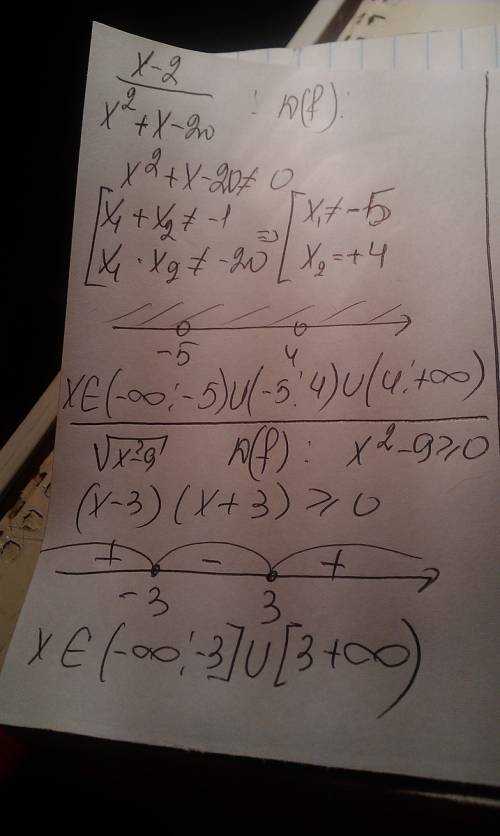 x-2
x²+x-20 : D(f):
x²+x-20≠0
[x₁+x₂≠-1 => [x₁≠-5
[x₁·x₂≠-20 [x₂=+4
-5 4
x∈(-∞;-5)∪(-5;4)∪(4;+∞)
√x²-9 D(f): x²-9≥0
(x-3)(x+3)≥0
+ - +
-3 3
x∈(-∞;-3]∪[3+∞)